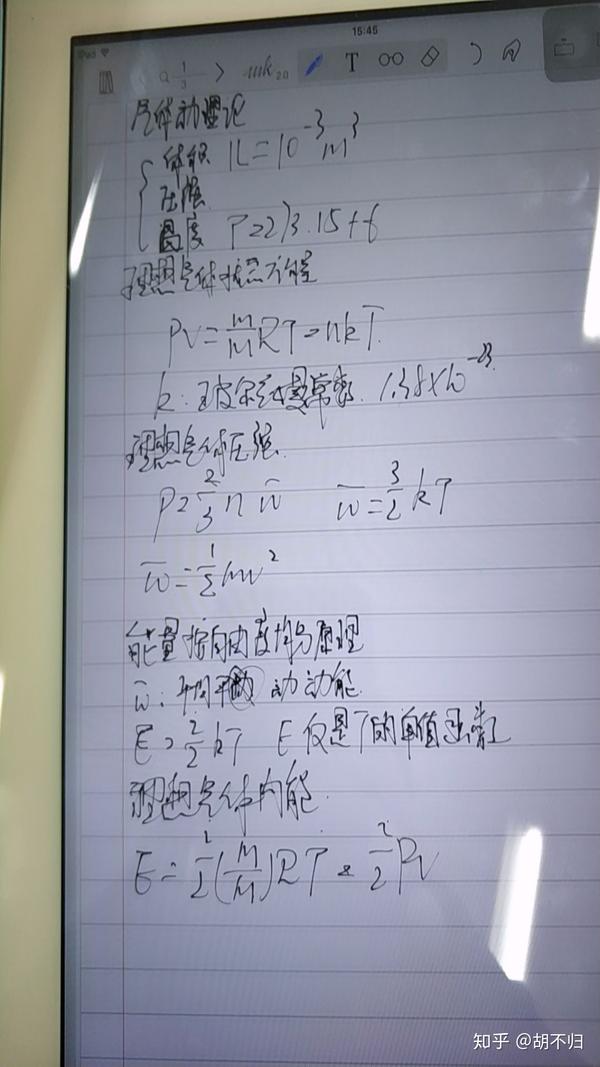 15:45
iPad
1
3
T
气体动理论
体积 1L=10⁻³m³
压强
温度 T=273.15+t
理想气体状态方程
PV=m/M RT=nkT
k:玻尔兹曼常数 1.38×10⁻²³
理想气体压强
P=2/3 n w̄ w̄=3/2 kT
w̄=1/2 mv²
能量按自由度均分原理
w̄:平均平动动能
E=i/2 kT E仅是T的单值函数
理想气体内能
E=i/2(m/M)RT=i/2 PV
知乎 @胡不归